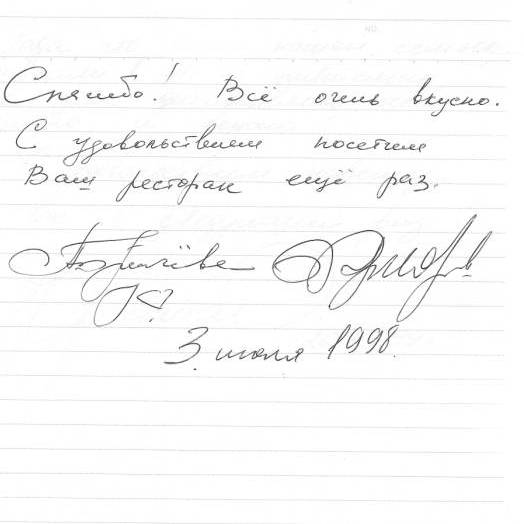 Спасибо! Всё очень вкусно.
С удовольствием посетим
Ваш ресторан ещё раз.
3 июля 1998.